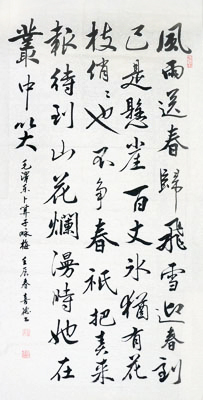 風雨送春歸飛雪迎春到
已是懸崖百丈冰猶有花
枝俏々也不争春祇把春来
報待到山花爛漫時她在
叢中笑
毛澤東卜算子咏梅 壬辰春